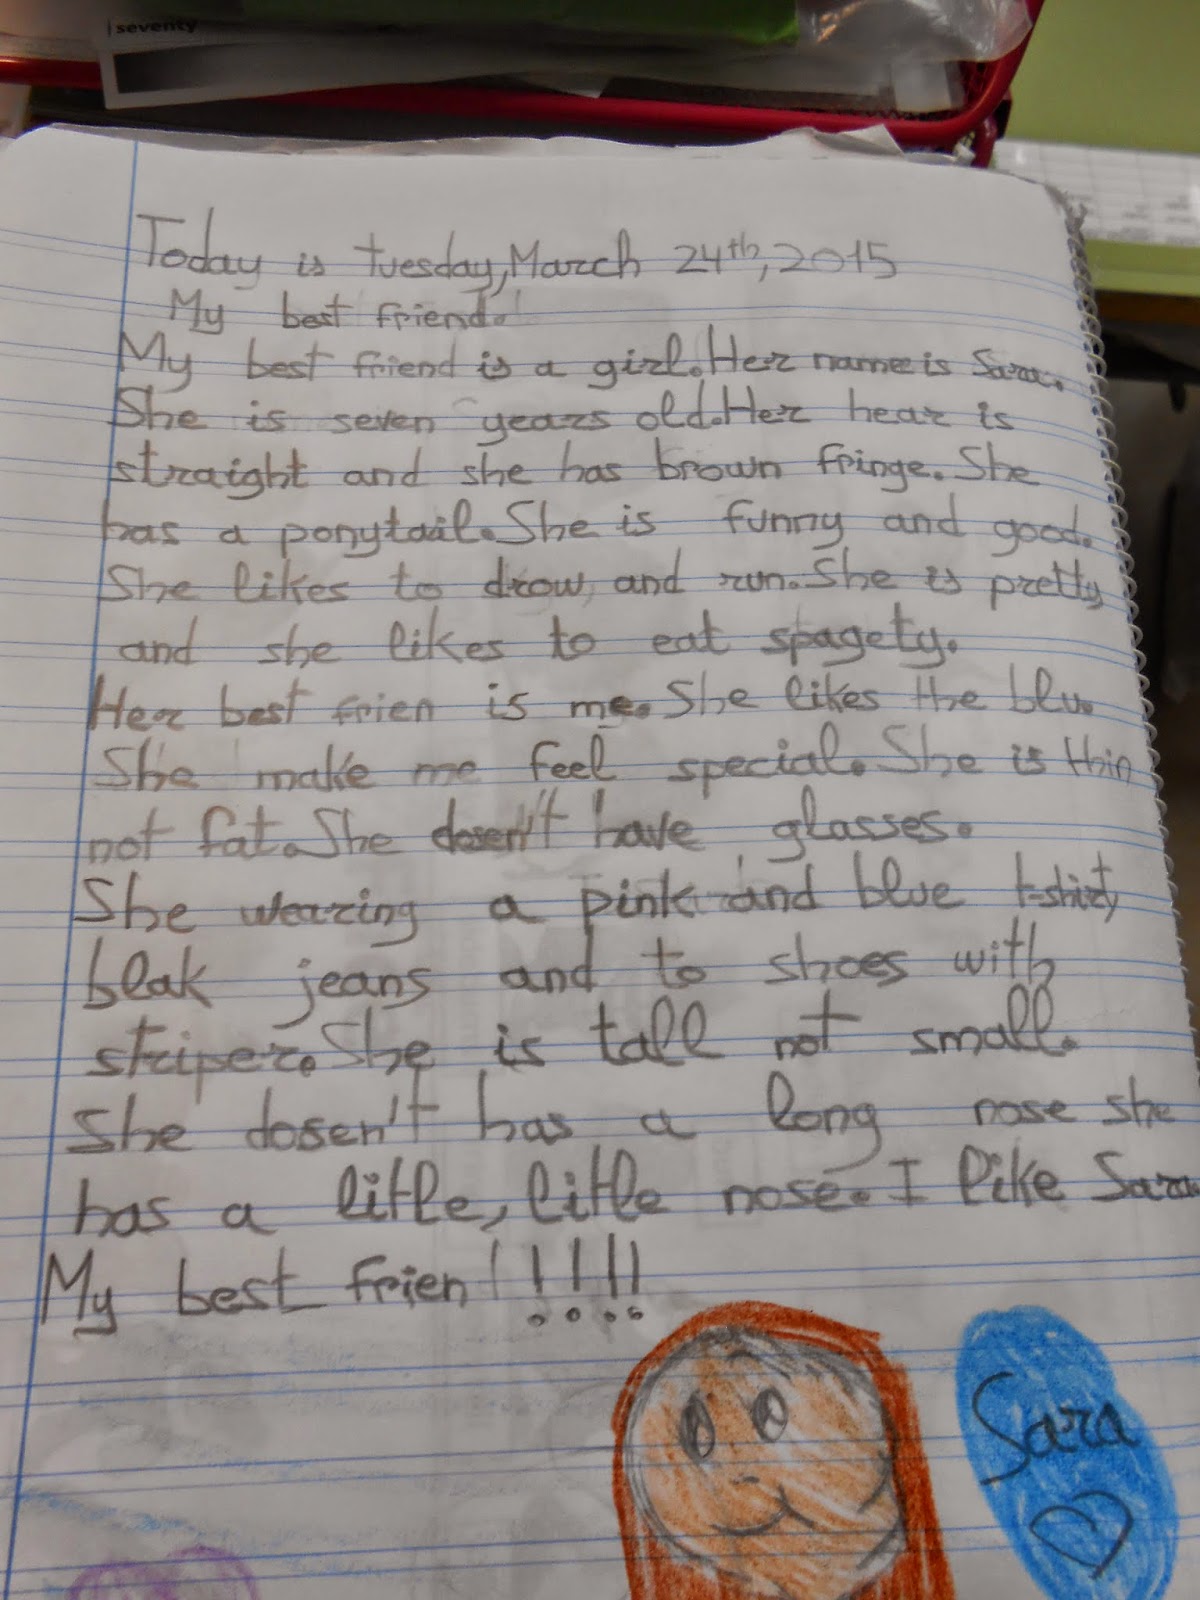 seventy
Today is tuesday, March 24th, 2015
My best friend.
My best friend is a girl. Her name is Sara.
She is seven years old. Her hear is
straight and she has brown fringe. She
has a ponytail. She is funny and good.
She likes to drow, and run. She is pretty
and she likes to eat spagety.
Her best frien is me. She likes the blu.
She make me feel special. She is thin
not fat. She dosen't have glasses.
She wearing a pink and blue t-shirt,
blak jeans and to shoes with
striper. She is tall not small.
She dosen't has a long nose she
has a litle, litle nose. I like Sara
My best frien!!!!!
Sara